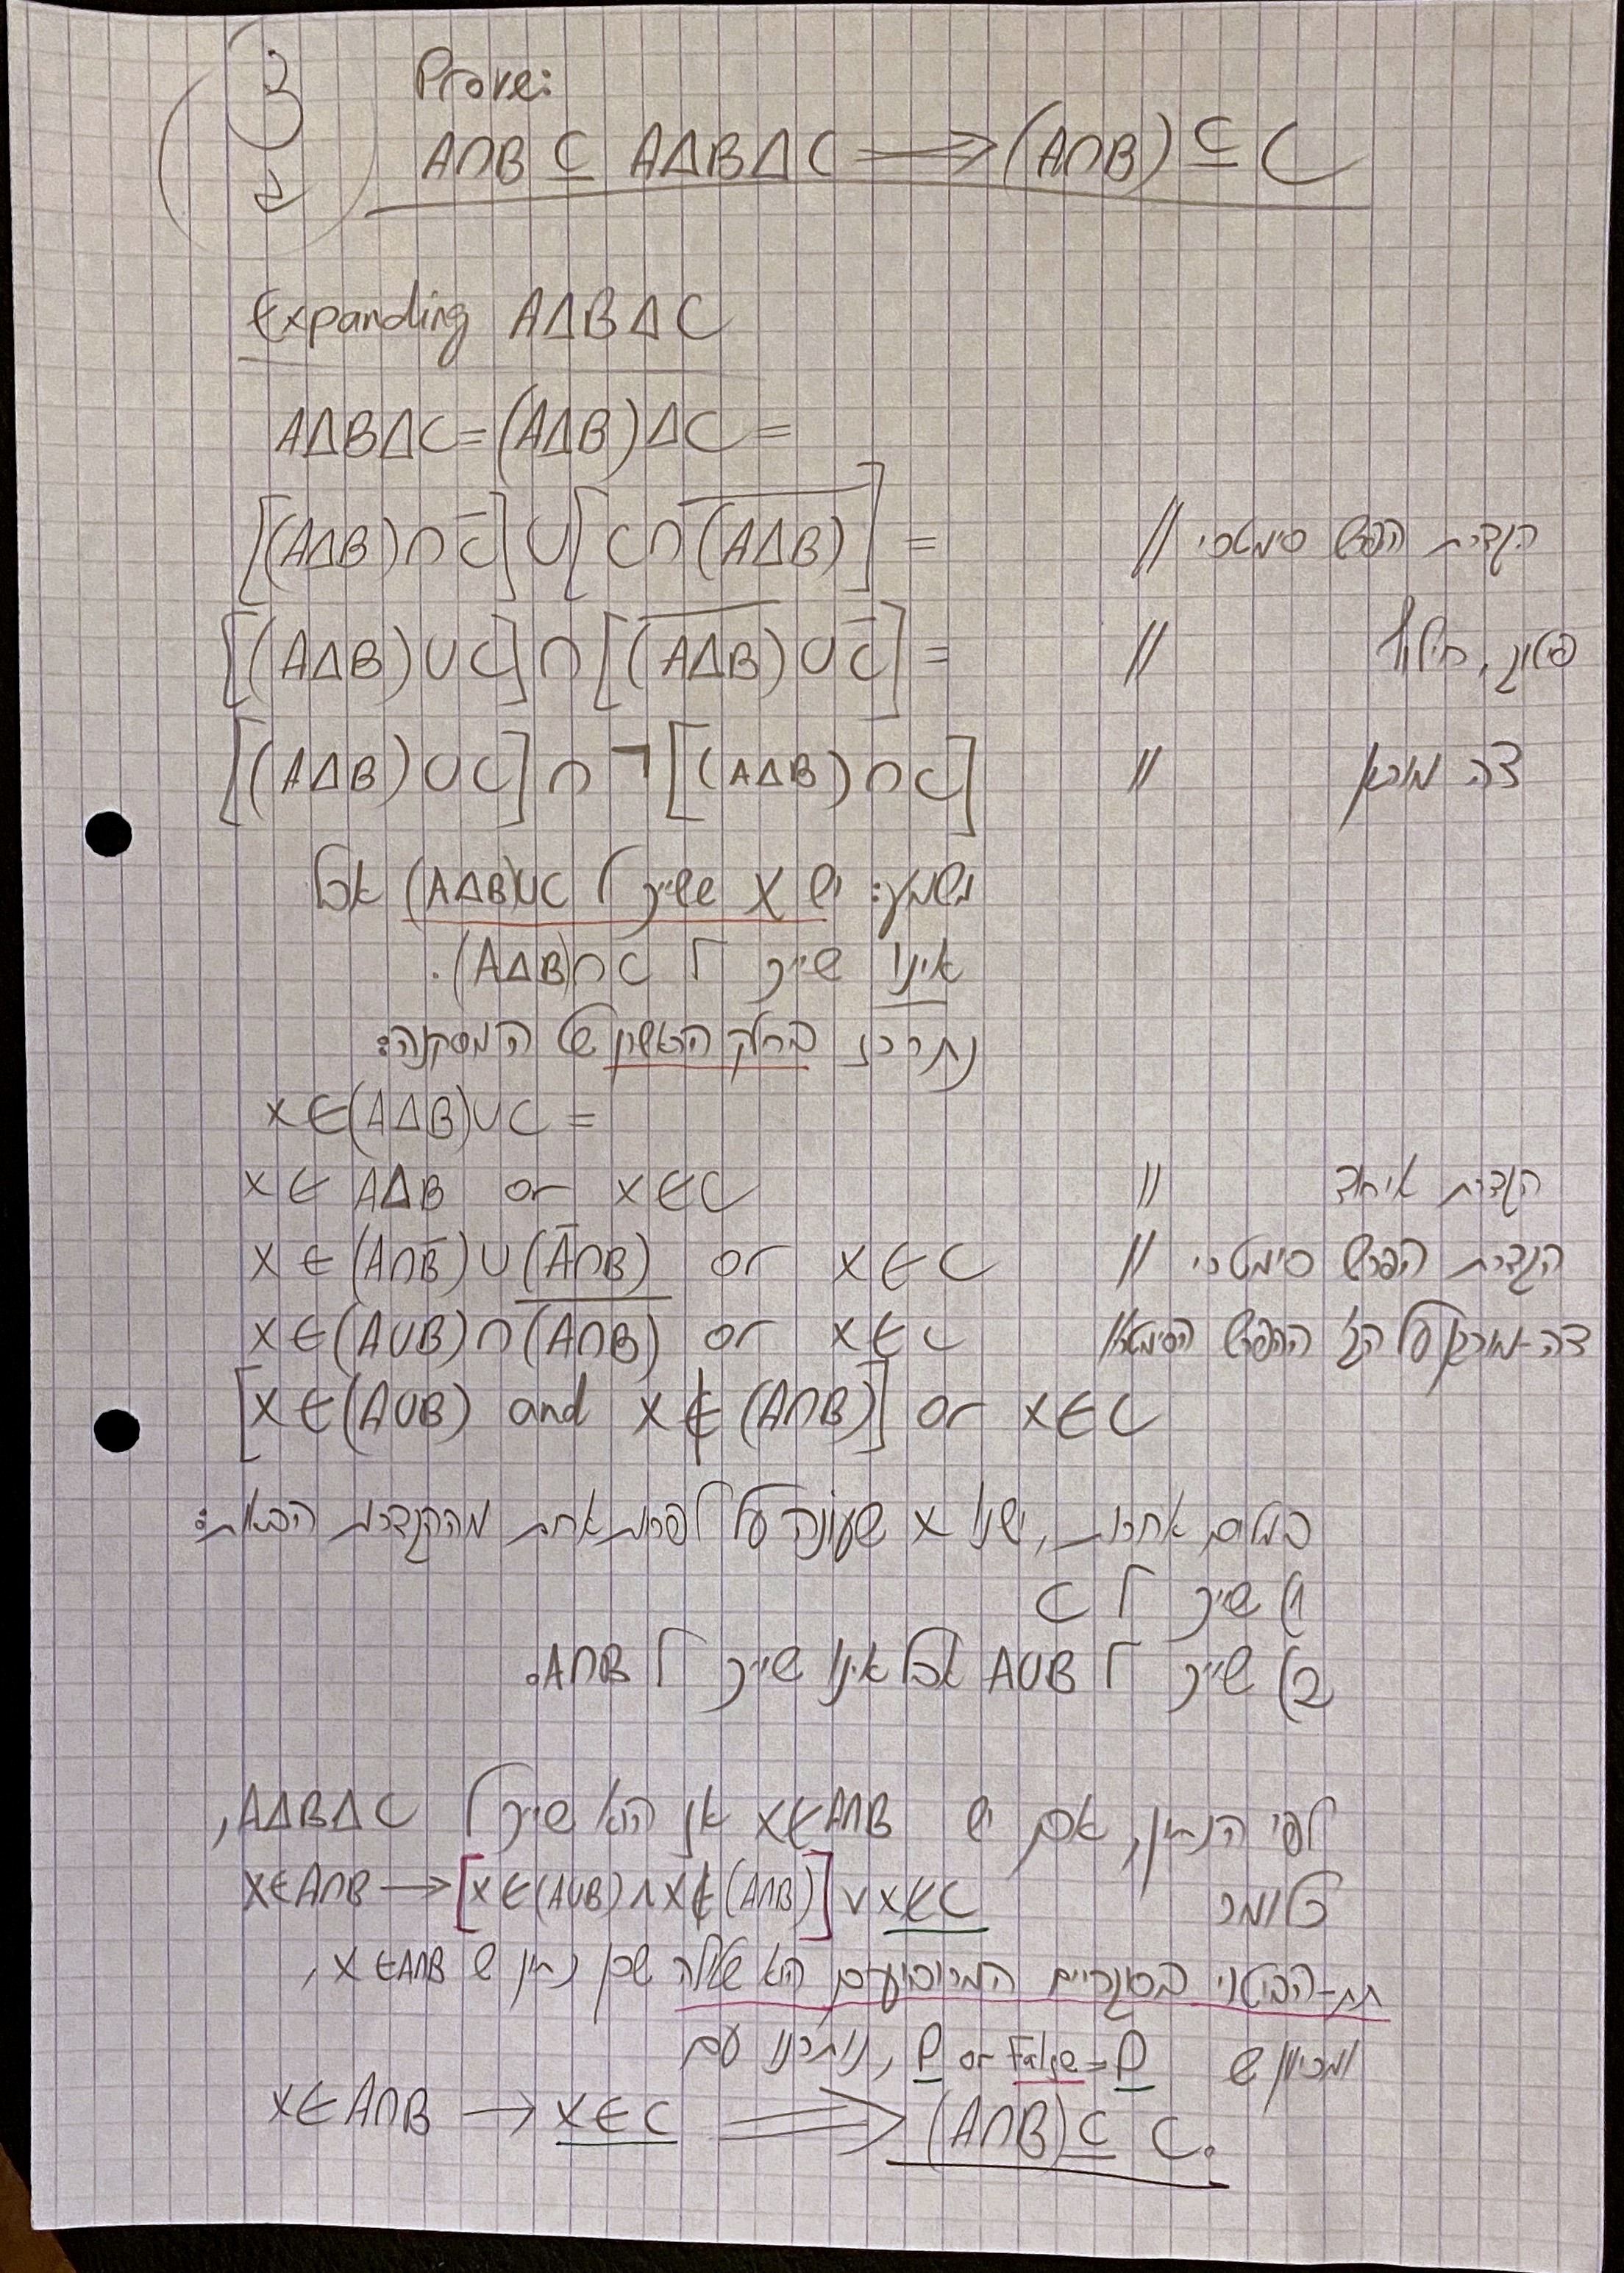 3
Prove:
A∩B ⊆ AΔBΔC ⟹ (A∩B) ⊆ C
ב
Expanding AΔBΔC
AΔBΔC = (AΔB)ΔC =
[(AΔB)∩C̅]∪[C∩\overline{(AΔB)}] = // הגדרת הפרש סימטרי
[(AΔB)∪C]∩[\overline{(AΔB)}∪C̅] = // פילוג, חילוף
[(AΔB)∪C]∩¬[(AΔB)∩C] // דה מורגן
משמע: יש x ששייך ל (AΔB)∪C אבל
אינו שייך ל (AΔB)∩C.
נתרכז בחלק הראשון של המסקנה:
x∈(AΔB)∪C =
x∈ AΔB or x∈C // הגדרת איחוד
x∈(A∩B̅)∪(A̅∩B) or x∈C // הגדרת הפרש סימטרי
x∈(A∪B)∩\overline{(A∩B)} or x∈C // דה-מורגן על הג' ההפרש הסימטרי
[x∈(A∪B) and x∉(A∩B)] or x∈C
במילים אחרות, ישנו x שעונה על לפחות אחת מההגדרות הבאות:
1) שייך ל C
2) שייך ל A∪B אבל אינו שייך ל A∩B.
לפי הנתון, אם יש x∈A∩B אז הוא שייך ל AΔBΔC,
כלומר x∈A∩B → [x∈(A∪B)∧x∉(A∩B)] ∨ x∈C
תת-הביטוי בסוגריים המרובעים הוא שלילה שכן נתון ש x∈A∩B,
ומכיוון ש P or False = P, נותרנו עם
x∈A∩B → x∈C ⟹ (A∩B) ⊆ C.